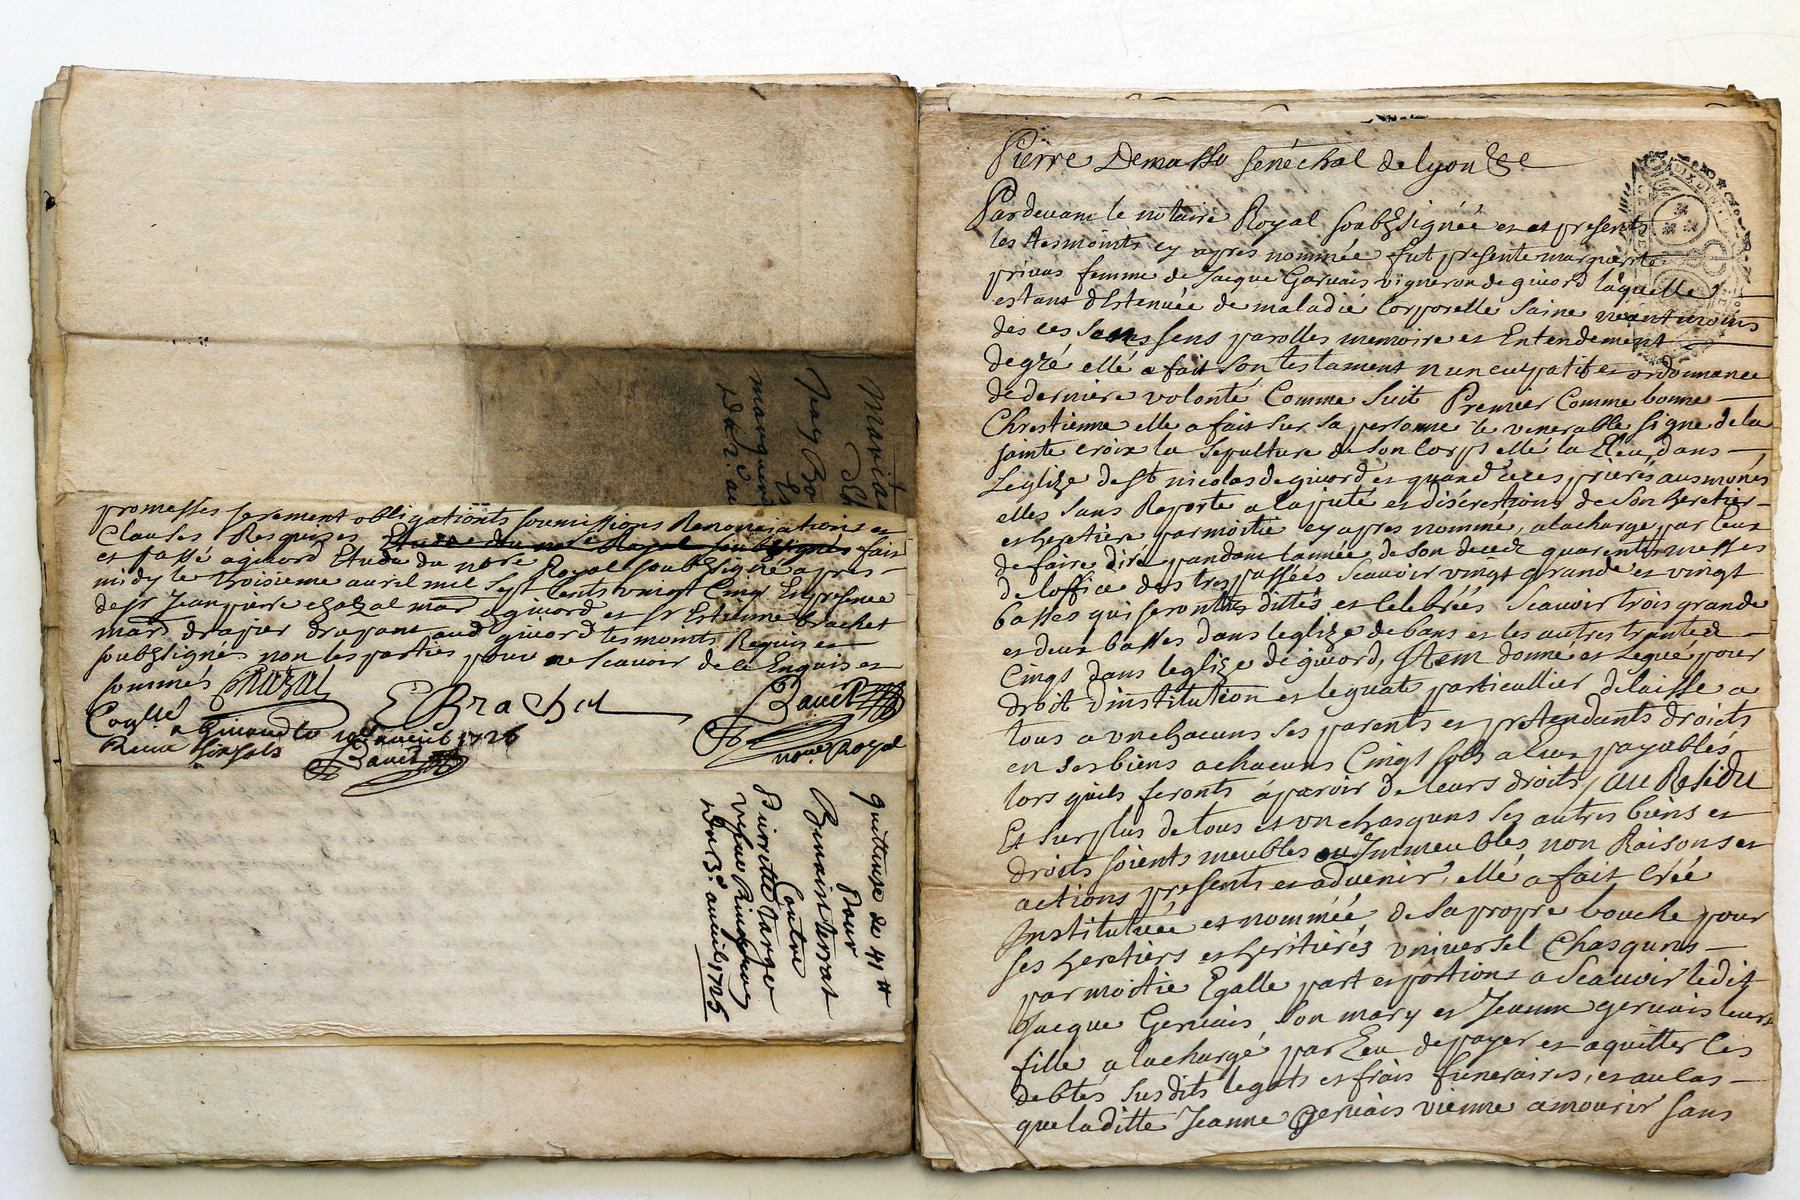 Maria
Jean Bo
marguer
promesses serement obligationts soumissions Renonciations et
Clauses Requizes Etude du nore Royal soubzsigné fait
et passé agivord Etude du nore Royal soubzsigné apres
midy le troisieme auril mil sept cents vingt Cinq En presence
de sr Jean pierre chazal mard agivord et sr Estienne brachet
mard drapier drapant aud givord tesmoints Requis et
soubzsignés non les parties pour ne scauoir de ce Enquis et
sommés Chazal
E Brachet
Bauet
Coyllé a Giuord le auril 1726
Receu six sols
Bauet
nore Royal
quittance de 41 tt
Pour
Benoist terrat
Contre
Pierrette targe
vefue
Du 3e auril 1725
Pierre Demasso senéchal de lyon &c
Pardeuant le notaire Royal soubzsignéé et et presents
les tesmoints cy apres nomméé fut presente marguerite
priuas femme de Jacque Garuais vigneron de giuord laquelle
estans dEstenuée de maladié Corporelle saine neantmoins
des ses sens parolles memoire et Entendement
de gré ellé a fait son testament nuncupatif et ordonnance
de derniere volonté Comme suit Premier Comme bonne
Chrestienne elle a fait sur sa personne le venerable signe de la
sainte croix la sepulture de son corps ellé la Eleu dans
Leglize de st nicolas de giuord et quand a ces prierés aumonés
elles sans Raporte a la piété et discrestions de son heretier
et heretiere par moitie cy apres nommé, a la charge par leux
de faire diré pandant lannéé de son decedz quarente messes
de loffice des trespassées scauoir vingt grande et vingt
basses qui seronts dittés et Celebréés scauoir trois grande
et deux basses dans leglizé de bans et les autres trante
Cinqs dans leglize de giuord, Item donné et Legué pour
droit d'institution et leguats particullier delaisse a
tous a vn chacuns ses parents et pretendants droicts
en ses biens a chacuns Cinqs sols a leux payablés
lors quils seronts aparoir de leurs droits / Au Residu
Et surplus de tous et vn chasquns ses autres biens et
droits soients meubles ou Immeubles non Raisons et
actions presents et aduenir, ellé a fait Créé
Instituéé et nomméé de sa propre bouche pour
ses heretiers et heritierés vniuersel Chasquns
par moitie Egalle part et portions a scauoir ledit
Jacque Geruais son mary et Jeanne geruais leurs
fille a la chargé par Eeu de payer et aquitter les
debtés susdits legats et frais funeraires, et au cas
que laditte Jeanne geruais vienne a mourir sans